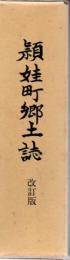 頴娃町郷土誌
改訂版